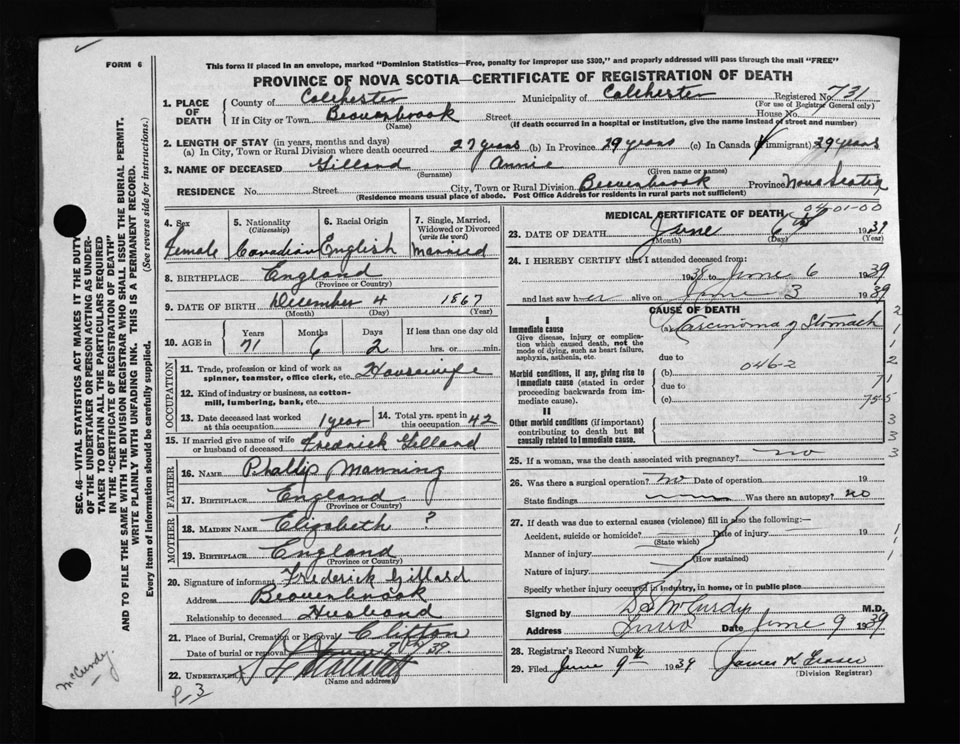 FORM 6
This form if placed in an envelope, marked "Dominion Statistics—Free, penalty for improper use $300," and properly addressed will pass through the mail "FREE"
PROVINCE OF NOVA SCOTIA—CERTIFICATE OF REGISTRATION OF DEATH
1. PLACE OF DEATH
County of Colchester Municipality of Colchester Registered No. 731
(For use of Registrar General only)
If in City or Town Beaverbrook Street House No.
(Name) (If death occurred in a hospital or institution, give the name instead of street and number)
2. LENGTH OF STAY (in years, months and days)
(a) In City, Town or Rural Division where death occurred 27 years (b) In Province 29 years (c) In Canada (if immigrant) 29 years
3. NAME OF DECEASED Gilland Annie
(Surname) (Given name or names)
RESIDENCE No. Street City, Town or Rural Division Beaverbrook Province Nova Scotia
(Residence means usual place of abode. Post Office Address for residents in rural parts not sufficient)
4. Sex Female
5. Nationality (Citizenship) Canadian
6. Racial Origin English
7. Single, Married, Widowed or Divorced (write the word) Married
8. BIRTHPLACE England
(Province or Country)
9. DATE OF BIRTH December 4 1867
(Month) (Day) (Year)
10. AGE in Years Months Days If less than one day old
71 6 2 hrs. or min.
OCCUPATION
11. Trade, profession or kind of work as spinner, teamster, office clerk, etc. Housewife
12. Kind of industry or business, as cotton-mill, lumbering, bank, etc.
13. Date deceased last worked at this occupation 1 year
14. Total yrs. spent in this occupation 42
15. If married give name of wife or husband of deceased Fredrick Gilland
FATHER
16. NAME Phillip Manning
17. BIRTHPLACE England
(Province or Country)
MOTHER
18. MAIDEN NAME Elizabeth ?
19. BIRTHPLACE England
(Province or Country)
20. Signature of informant Frederick Gillard
Address Beaverbrook
Relationship to deceased Husband
21. Place of Burial, Cremation or Removal Clifton
Date of burial or removal
22. UNDERTAKER
(Name and address)
MEDICAL CERTIFICATE OF DEATH
04-01-00
23. DATE OF DEATH June 6th 1939
(Month) (Day) (Year)
24. I HEREBY CERTIFY that I attended deceased from
1938 to June 6 1939
and last saw her alive on June 3 1939
CAUSE OF DEATH
I
Immediate cause
Give disease, injury or complication which caused death, not the mode of dying, such as heart failure, asphyxia, asthenia, etc.
(a) Carcinoma of Stomach
due to
046-2
Morbid conditions, if any, giving rise to immediate cause (stated in order proceeding backwards from immediate cause).
(b)
due to
(c)
II
Other morbid conditions (if important) contributing to death but not causally related to immediate cause.
25. If a woman, was the death associated with pregnancy? no
26. Was there a surgical operation? no Date of operation 19
State findings Was there an autopsy? no
27. If death was due to external causes (violence) fill in also the following:—
Accident, suicide or homicide? Date of injury 19
(State which)
Manner of injury
(How sustained)
Nature of injury
Specify whether injury occurred in industry, in home, or in public place
Signed by McCurdy M.D.
Address Truro Date June 9 1939
28. Registrar's Record Number
29. Filed June 9th 1939 James K. Fraser
(Division Registrar)
SEC. 46—VITAL STATISTICS ACT MAKES IT THE DUTY
OF THE UNDERTAKER OR PERSON ACTING AS UNDERTAKER TO OBTAIN ALL THE PARTICULARS REQUIRED
IN THE "CERTIFICATE OF REGISTRATION OF DEATH"
AND TO FILE THE SAME WITH THE DIVISION REGISTRAR WHO SHALL ISSUE THE BURIAL PERMIT.
WRITE PLAINLY WITH UNFADING INK. THIS IS A PERMANENT RECORD.
Every item of information should be carefully supplied. (See reverse side for instructions.)
McCurdy
P-3